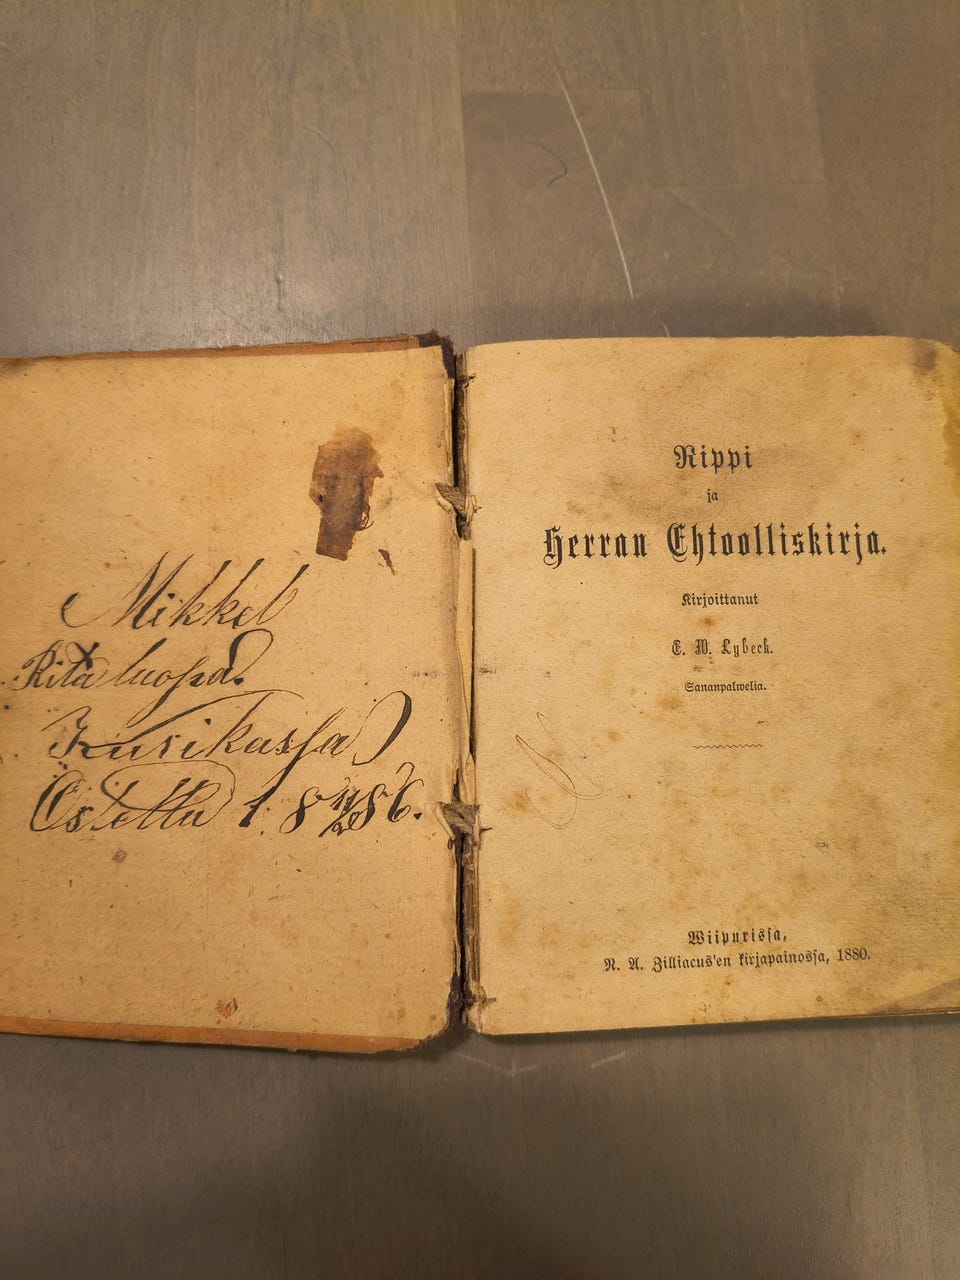 Mikkel
Ritaluoma.
Kurikassa
Ostettu 1.8 11/20 86.
Rippi
ja
Herran Ehtoolliskirja.
Kirjoittanut
E. W. Lybeck.
Sananpalwelia.
Wiipurissa,
N. A. Zilliacus'en kirjapainossa, 1880.